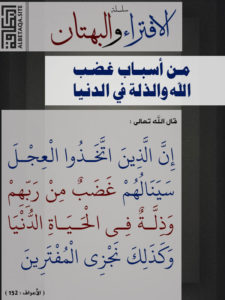 سلسلة
الافتراء والبهتان
البطاقة
ALBETAQA.SITE
من أسباب غضب
الله والذلة في الدنيا
قال الله تعالى :
إِنَّ الَّذِينَ اتَّخَذُوا الْعِجْلَ
سَيَنَالُهُمْ غَضَبٌ مِنْ رَبِّهِمْ
وَذِلَّةٌ فِي الْحَيَاةِ الدُّنْيَا
وَكَذَلِكَ نَجْزِي الْمُفْتَرِينَ
( الأعراف : 152 )